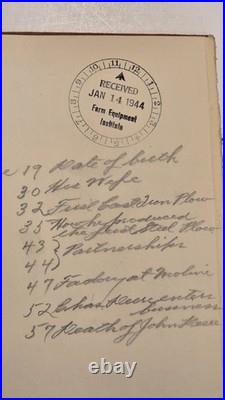 12
11
10
9
8
7
6
5
4
3
2
1
RECEIVED
JAN 14 1944
Farm Equipment
Institute
19 Date of birth
30 His Wife
32 First Cast Iron Plow
35 How he produced
the first Steel Plow
43 } Partnerships
44 }
47 Factory at Moline
52 Chas Deere enters
business
57 Death of John Deere